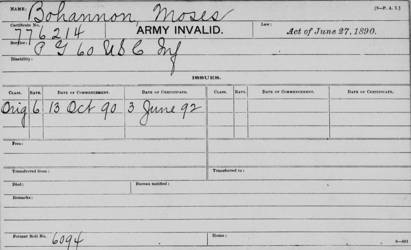 NAME: Bohannon, Moses [3-P. A. I.]
Certificate No. 776214 ARMY INVALID. Law: Act of June 27, 1890.
Service: P G 60 U S C Inf
Disability:
ISSUES.
CLASS. RATE. DATE OF COMMENCEMENT. DATE OF CERTIFICATE. CLASS. RATE. DATE OF COMMENCEMENT. DATE OF CERTIFICATE.
Orig 6 13 Oct 90 3 June 92
Fees:
Transferred from: Transferred to:
Died: Bureau notified:
Remarks:
Former Roll No. 6094 Home: